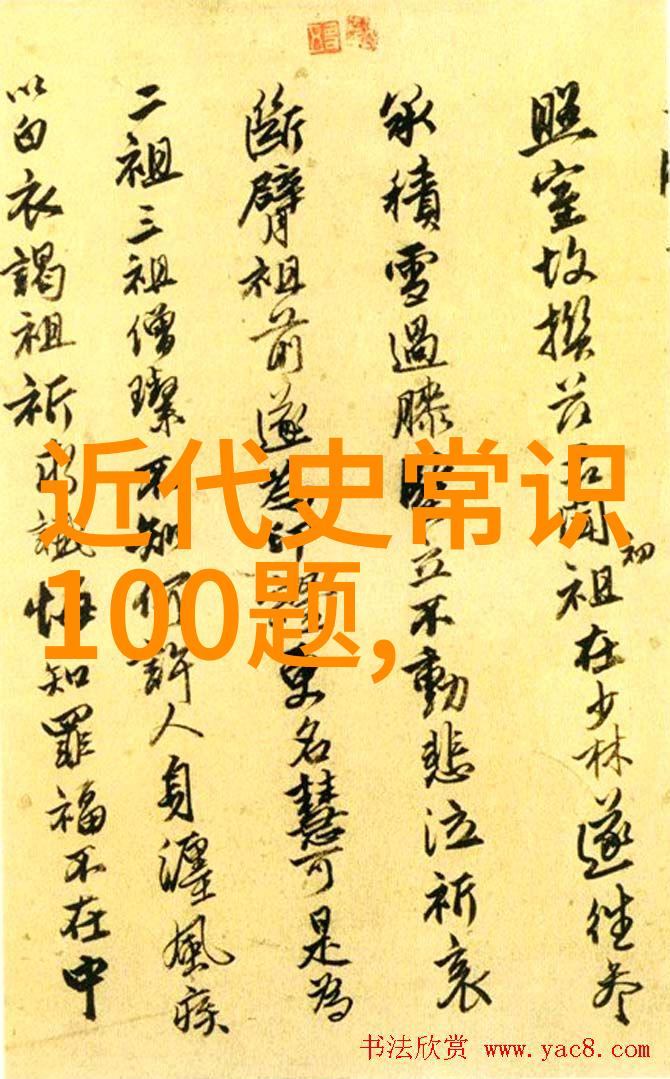 照室故撰聞初祖在少林遂往參
承積雪過膝堅立不動悲泣祈哀
斷臂祖前遂為印證更名慧可是為
二祖三祖僧璨不知何許人身纏風疾
以白衣謁祖祈為懺悔知罪福不在中
近代史常识
100题,
书法欣赏 www.yac8.com